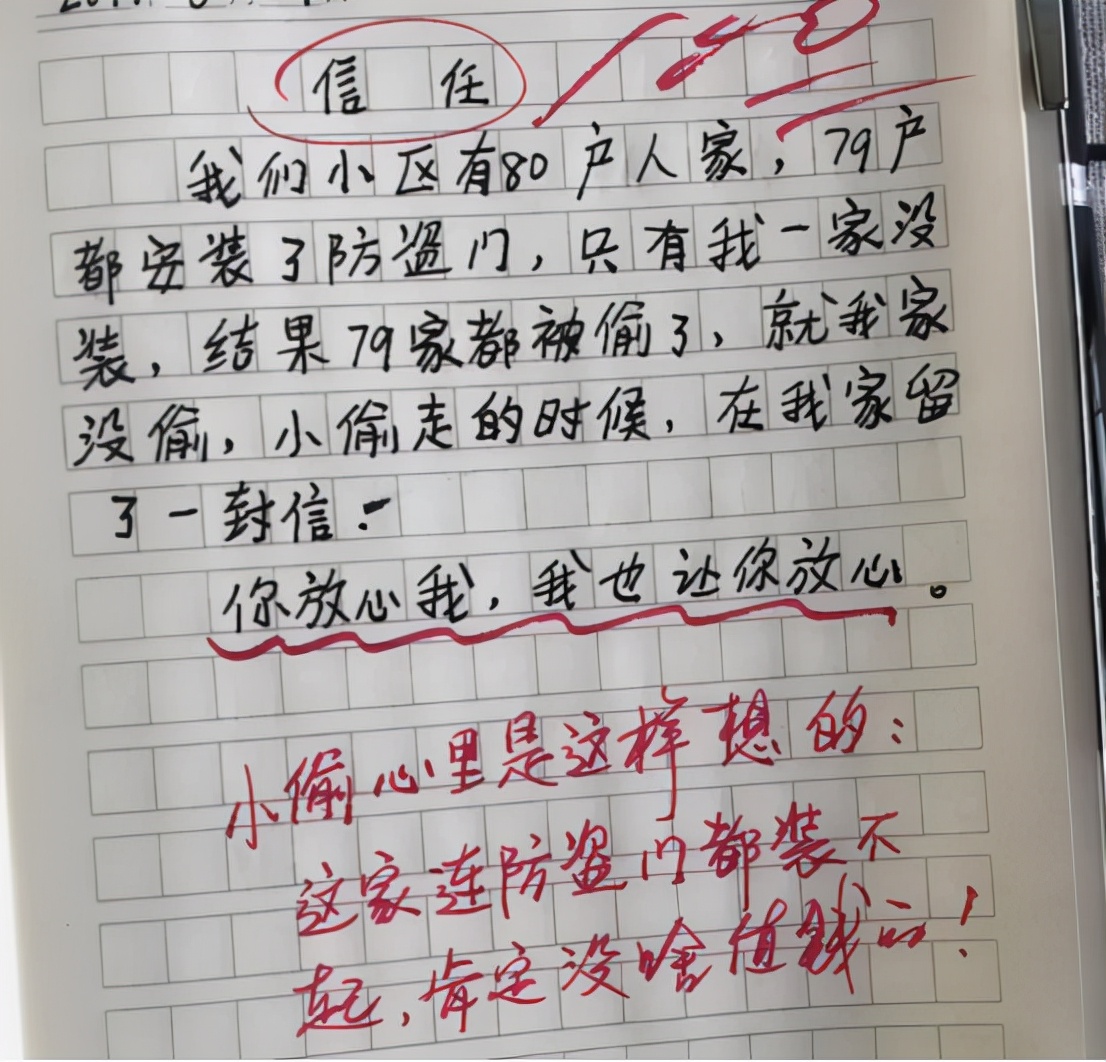 信任
我们小区有80户人家，79户
都安装了防盗门，只有我一家没
装，结果79家都被偷了，就我家
没偷，小偷走的时候，在我家留
了一封信：
你放心我，我也让你放心。
小偷心里是这样想的：
这家连防盗门都装不
起，肯定没啥值钱的！